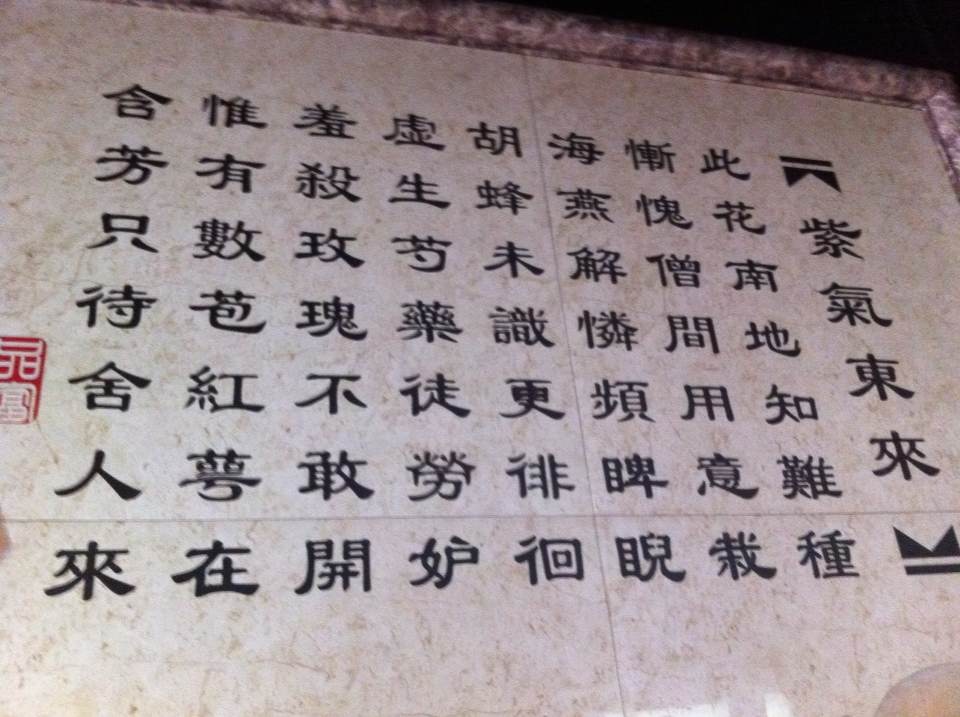 紫氣東來
此花南地知難種
慚愧僧間用意栽
海燕解憐頻睥睨
胡蜂未識更徘徊
虛生芍藥徒勞妒
羞殺玫瑰不敢開
惟有數苞紅萼在
含芳只待舍人來